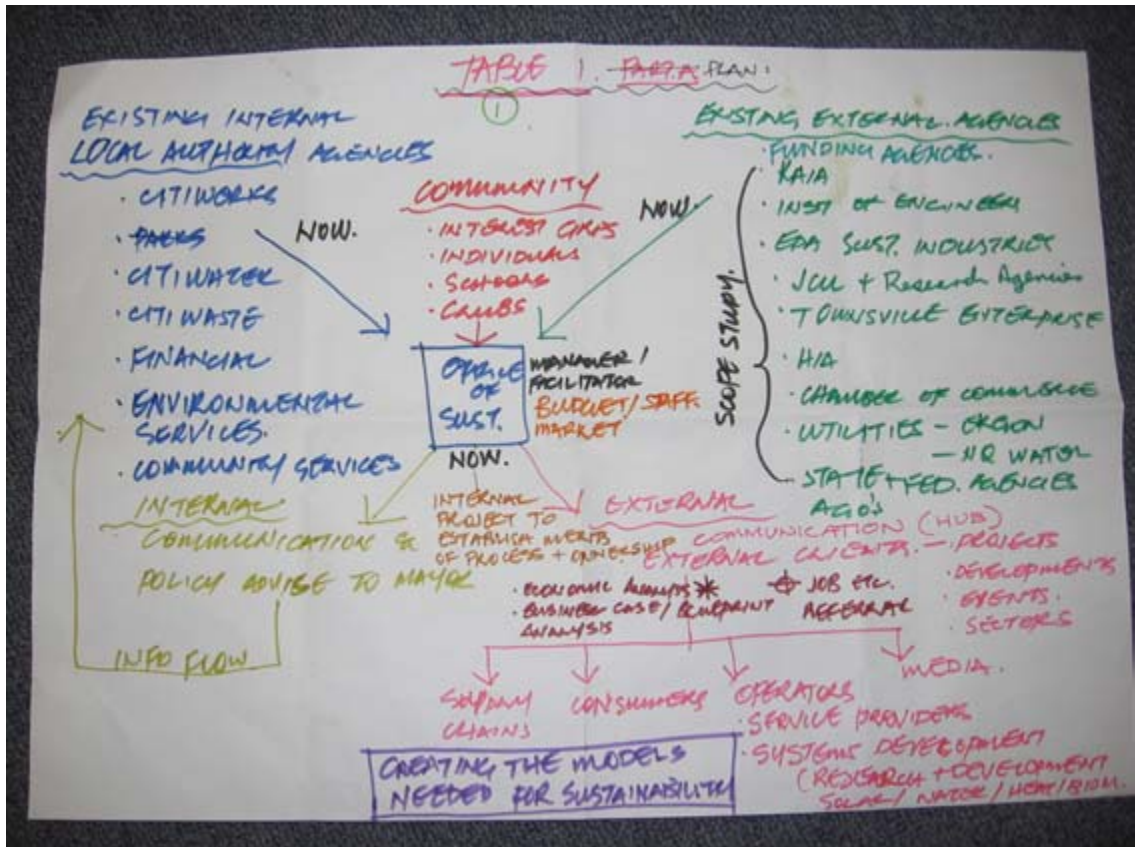 TABLE 1. PART A PLAN:
1
EXISTING INTERNAL
LOCAL AUTHORITY AGENCIES
· CITIWORKS
· PARKS
· CITIWATER
· CITIWASTE
· FINANCIAL
· ENVIRONMENTAL
SERVICES.
· COMMUNITY SERVICES
NOW.
COMMUNITY
· INTEREST GRPS
· INDIVIDUALS
· SCHOOLS
· CLUBS
NOW.
EXISTING EXTERNAL AGENCIES
· FUNDING AGENCIES.
· RAIA
· INST OF ENGINEERS
· EPA SUST. INDUSTRIES
· JCU + Research Agencies
· TOWNSVILLE ENTERPRISE
· HIA
· CHAMBER OF COMMERCE
· UTILITIES – ERGON
– NQ WATER
· STATE + FED. AGENCIES
AGO's
SCOPE STUDY.
OFFICE
OF
SUST.
MANAGER /
FACILITATOR
BUDGET/STAFF
MARKET
NOW.
INTERNAL
COMMUNICATION &
POLICY ADVISE TO MAYOR
INFO FLOW
INTERNAL
PROJECT TO
ESTABLISH MERITS
OF PROCESS + OWNERSHIP
EXTERNAL
COMMUNICATION (HUB)
EXTERNAL CLIENTS. – PROJECTS
· DEVELOPMENTS
· EVENTS.
· SECTORS
· ECONOMIC ANALYSIS *
· BUSINESS CASE / BLUEPRINT
ANALYSIS
JOB ETC.
REFERRAL
SUPPLY
CHAINS
CONSUMERS
OPERATORS
· SERVICE PROVIDERS
· SYSTEMS DEVELOPMENT
(RESEARCH + DEVELOPMENT
SOLAR / WATER / HEAT / BIOM.
MEDIA.
CREATING THE MODELS
NEEDED FOR SUSTAINABILITY